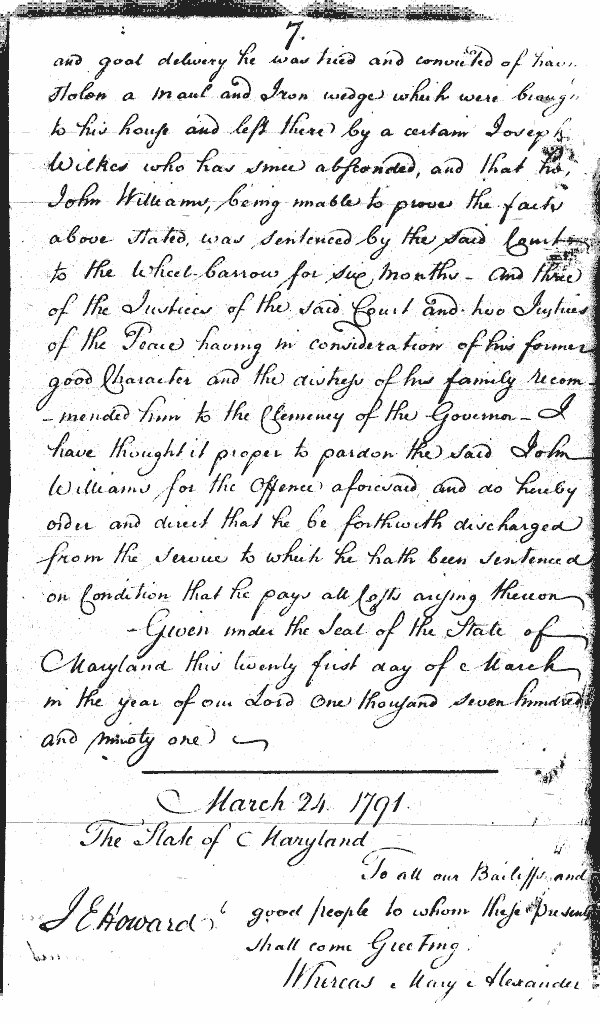 7.
and goal delivery he was tried and convicted of hav
stolen a maul and Iron wedge which were broug
to his house and left there by a certain Joseph
Wilkes who has since absconded, and that he,
John Williams, being unable to prove the facts
above stated, was sentenced by the said Court
to the Wheel-barrow for six Months - and three
of the Justices of the said Court and two Justices
of the Peace having in consideration of his former
good Character and the distress of his family recom-
-mended him to the Clemency of the Governor - I
have thought it proper to pardon the said John
Williams for the Offence aforesaid and do hereby
order and direct that he be forthwith discharged
from the service to which he hath been sentenced
on Condition that he pays all Costs arising thereon
- Given under the Seal of the State of
Maryland this twenty first day of March
in the year of our Lord One thousand seven hundred
and ninety one
March 24. 1791.
The State of Maryland
To all our Bailiffs and
J E Howard good people to whom these presents
shall come Greeting.
Whereas Mary Alexander